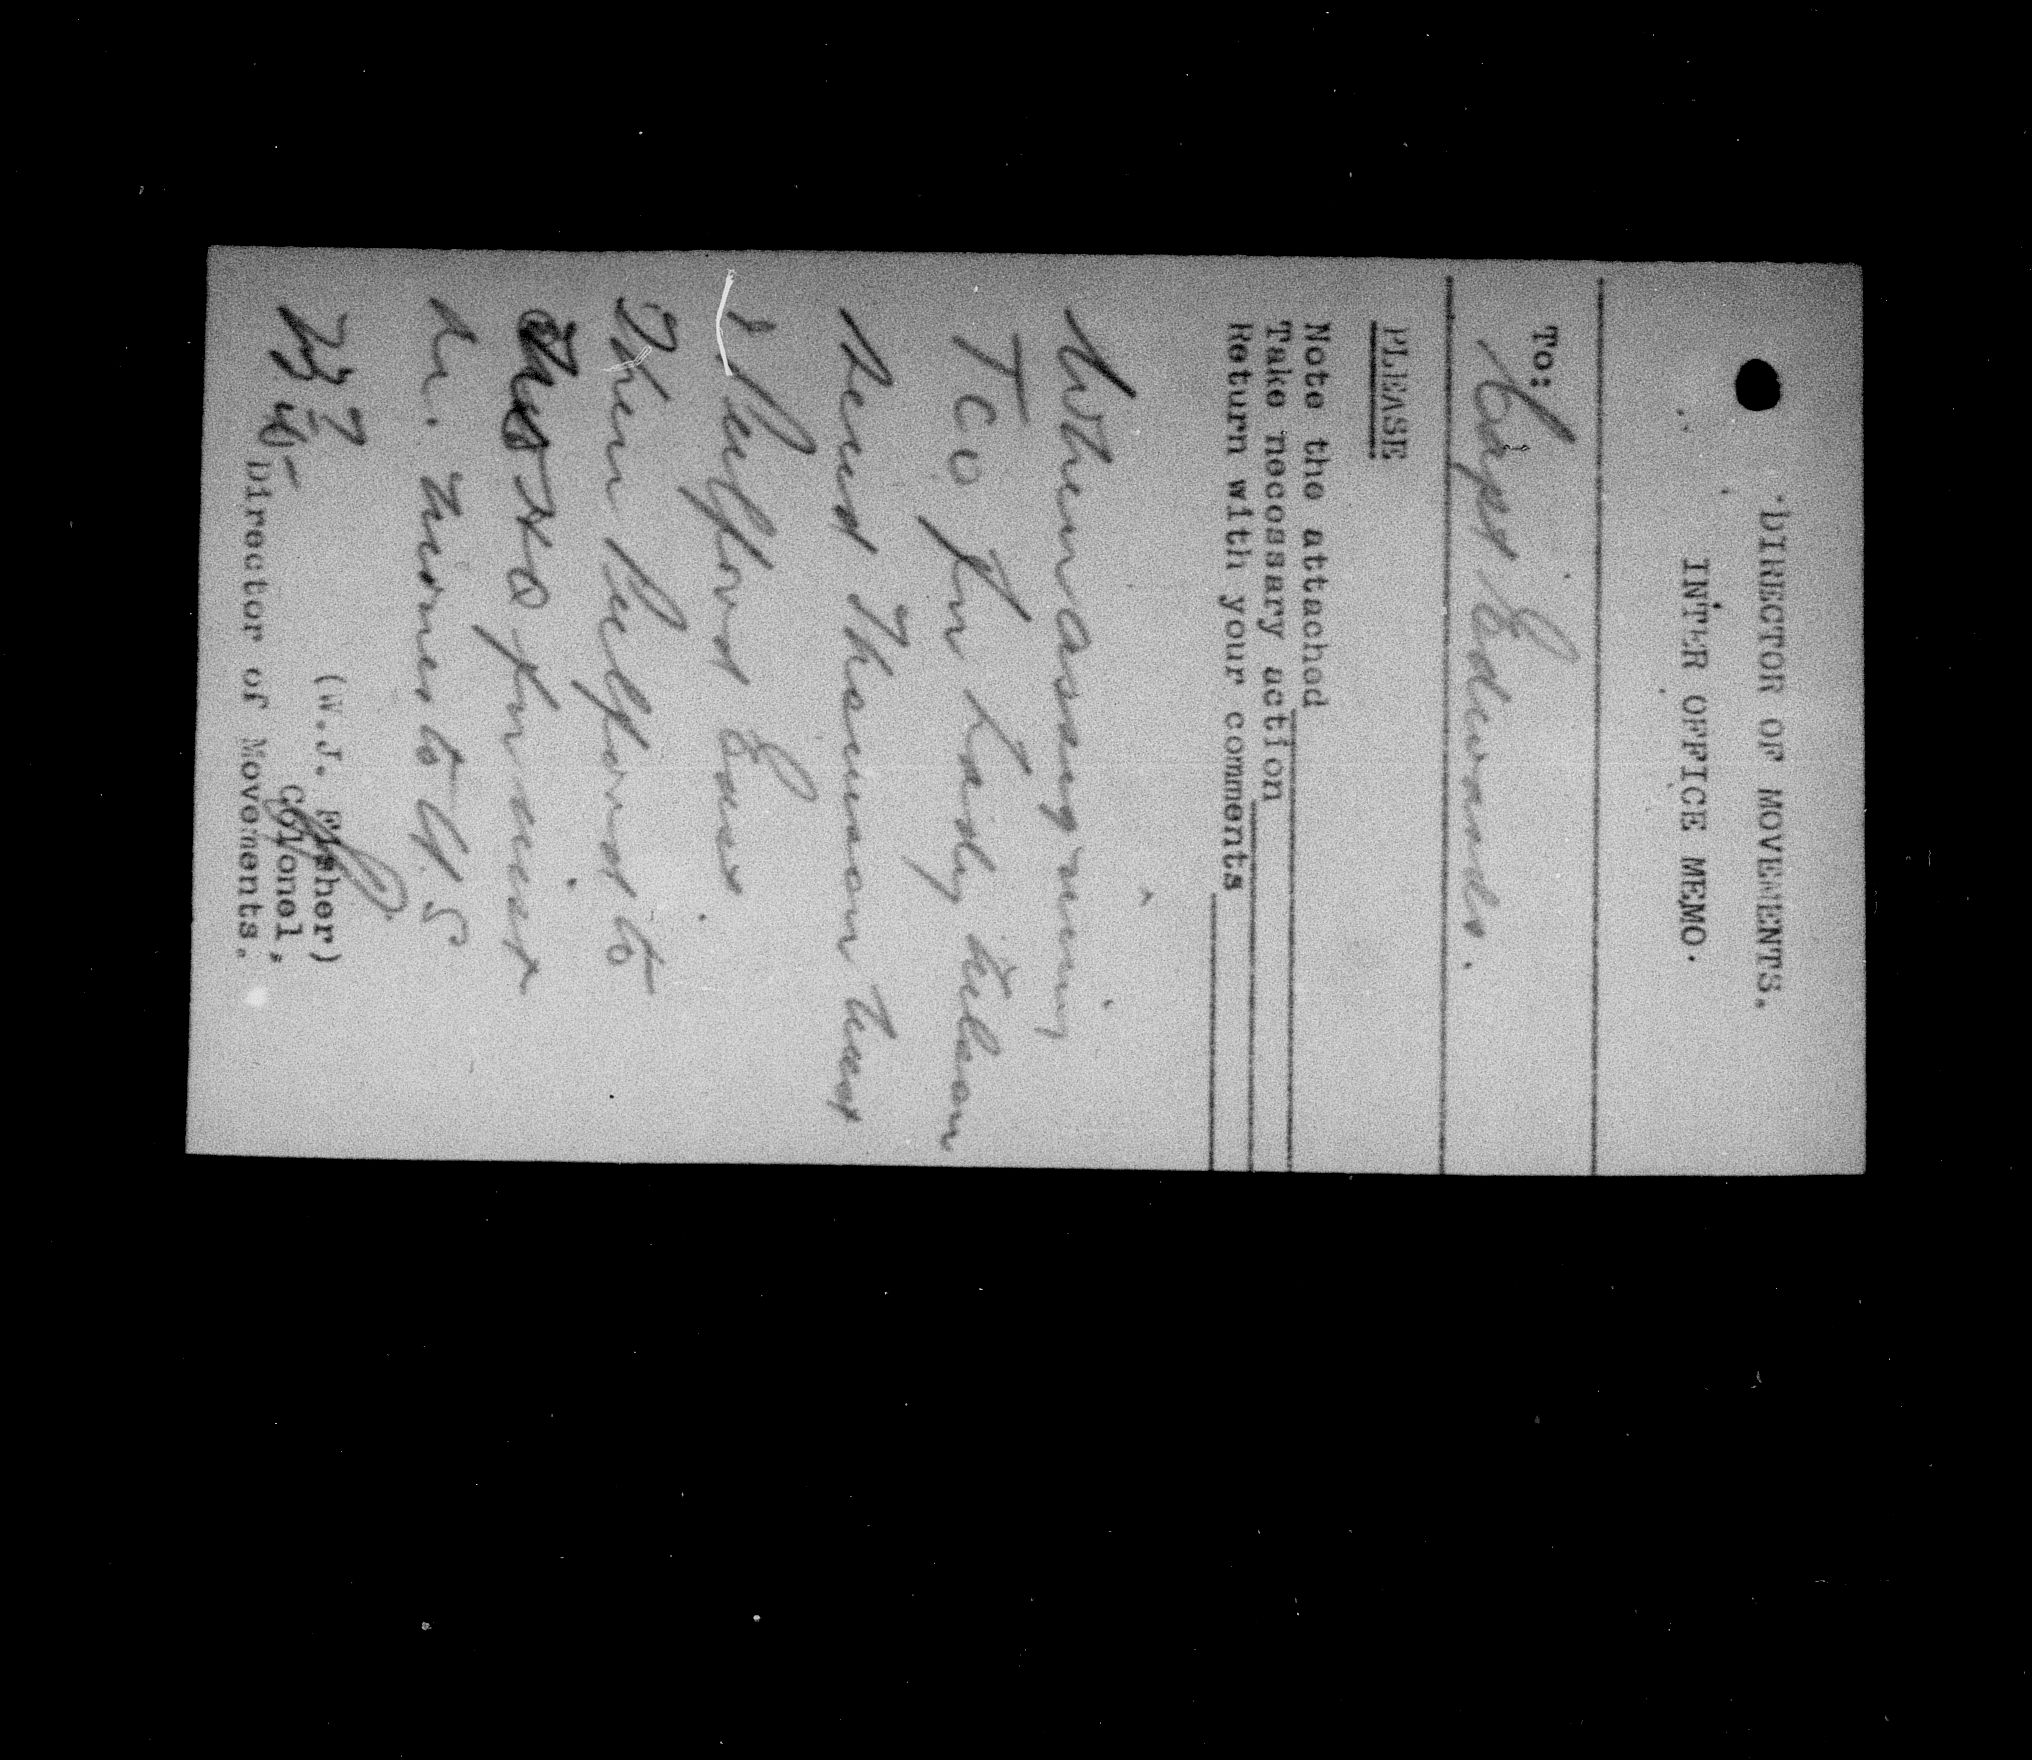 DIRECTOR OF MOVEMENTS.
INTER OFFICE MEMO.
To:
Capt Edwards.
PLEASE
Note the attached
Take necessary action
Return with your comments
When assigning
TCO for Lady Nelson
send Thomson best
&
Then Pulford to
this HQ for
to U.S
(W.J. Fisher)
Colonel,
Director of Movements.